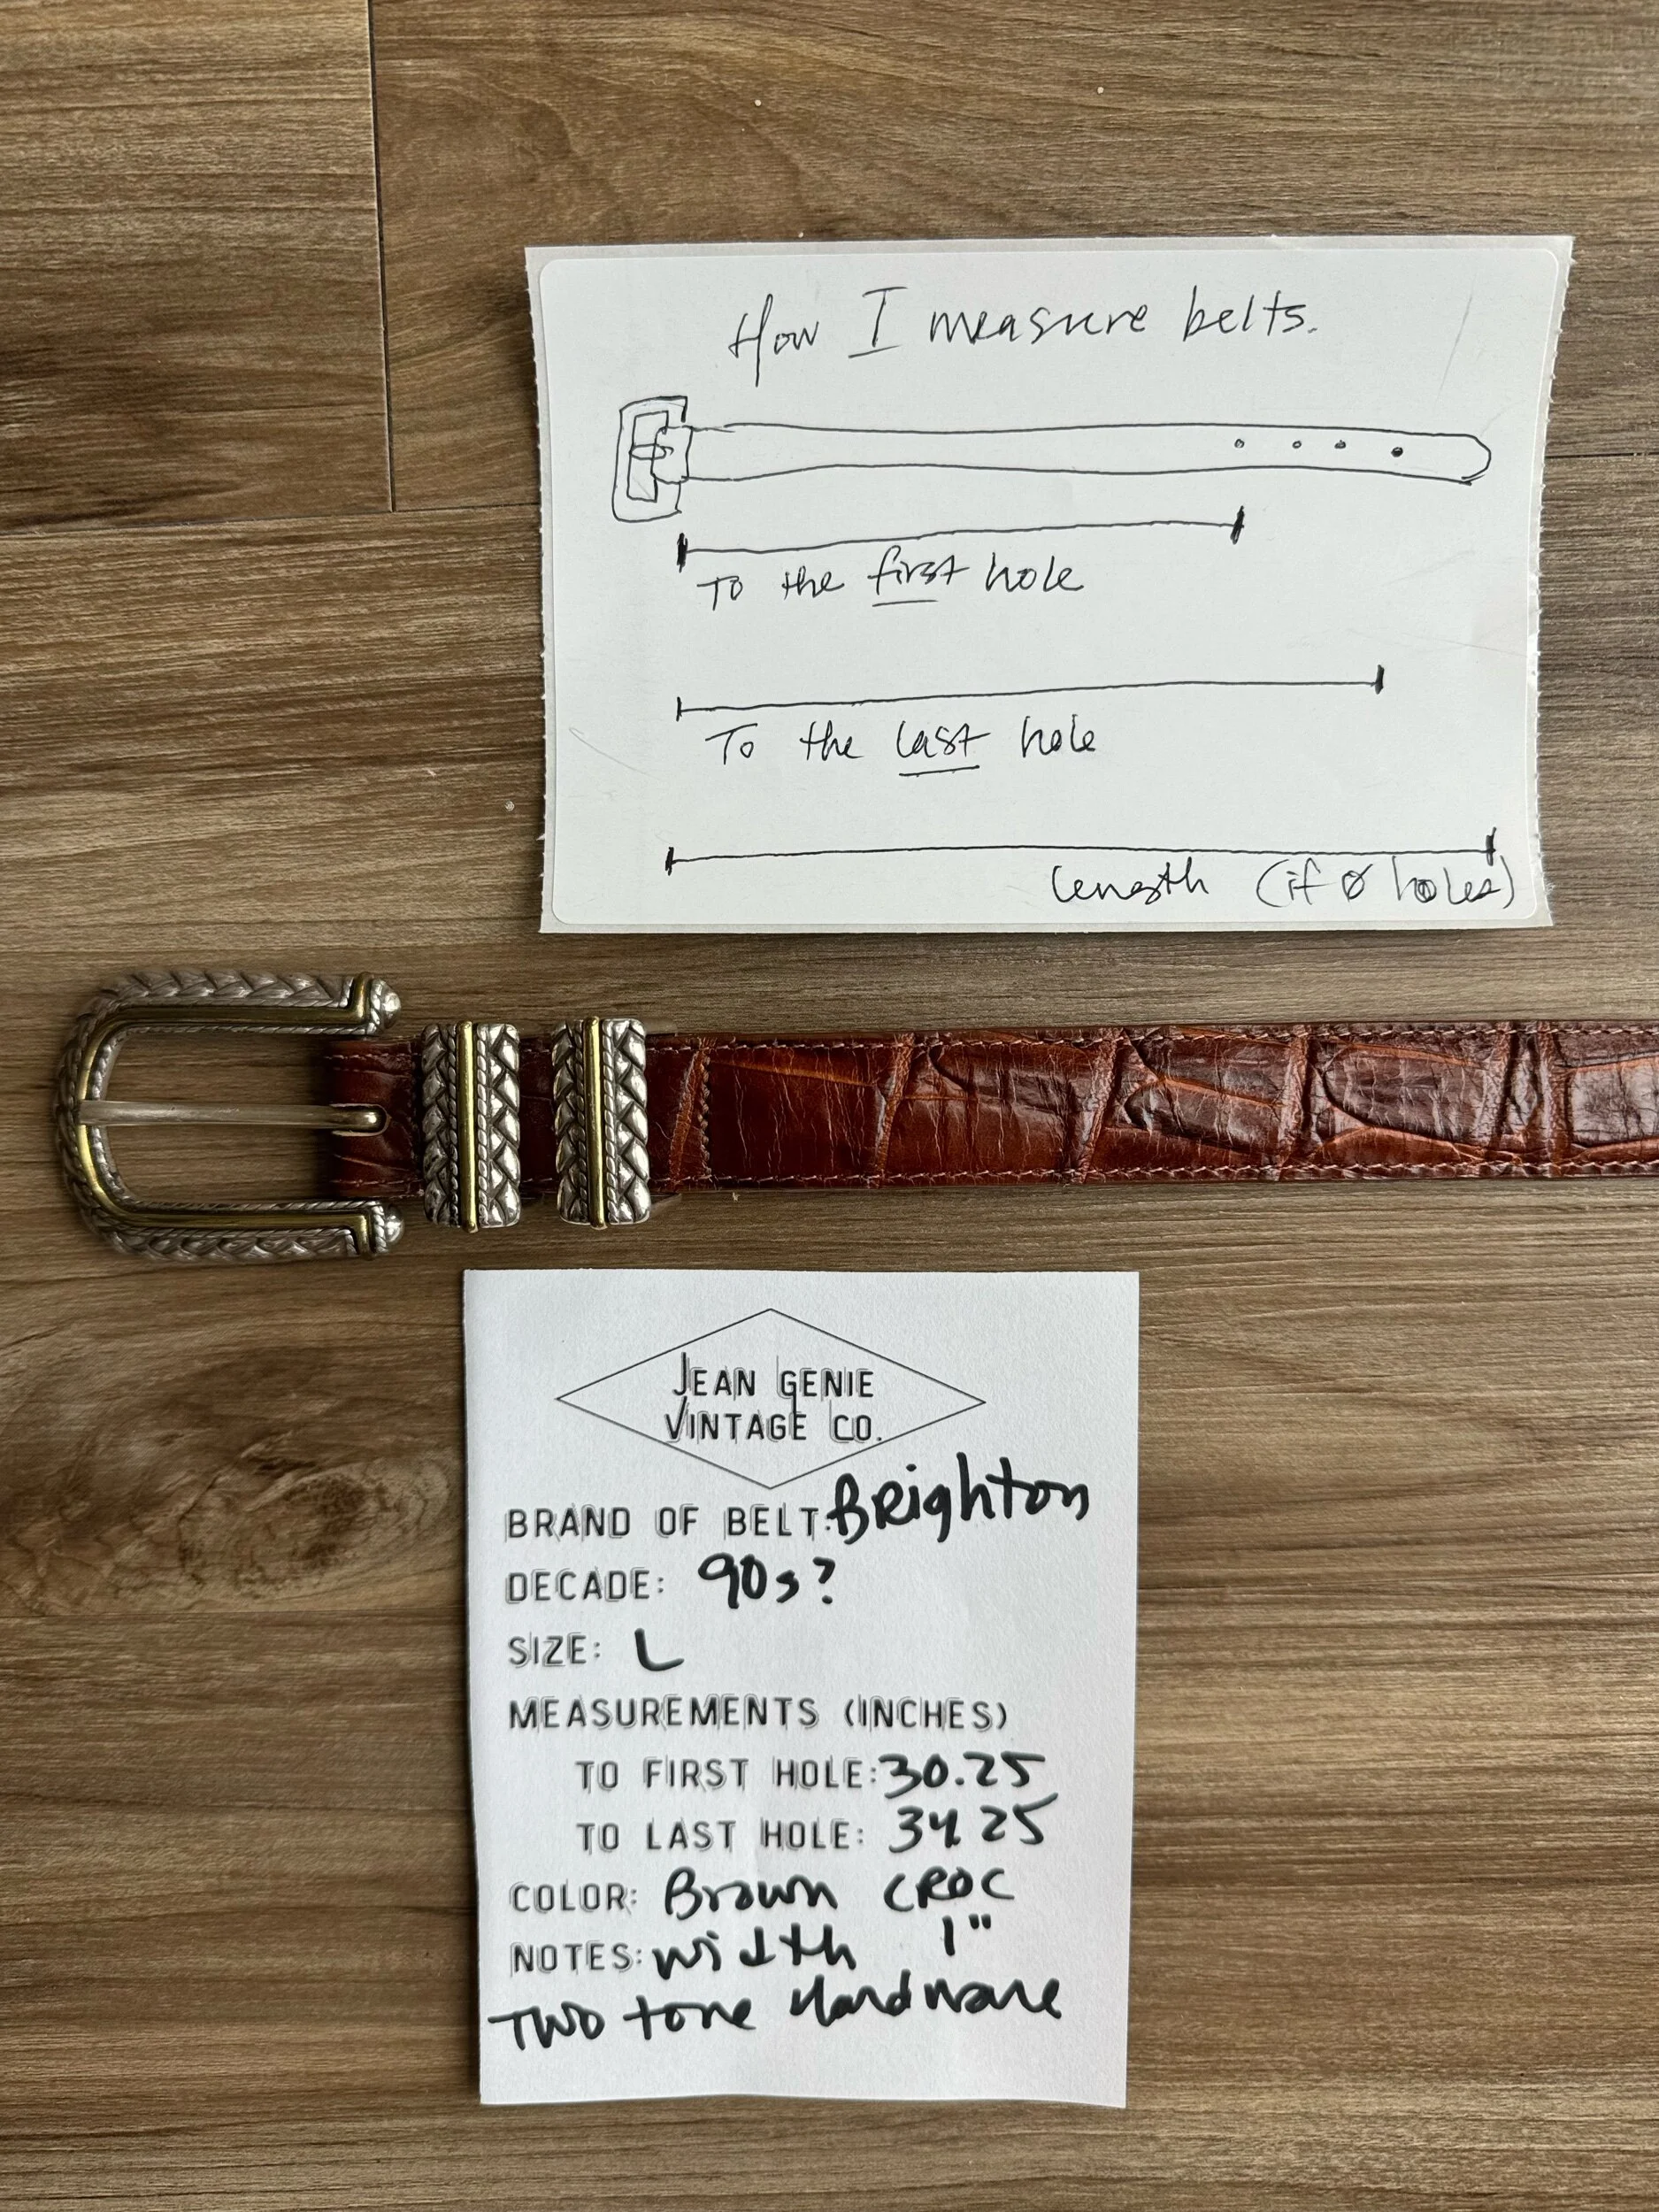 How I measure belts.
To the first hole
To the last hole
length (if Ø holes)
JEAN GENIE
VINTAGE CO.
BRAND OF BELT: Brighton
DECADE: 90s?
SIZE: L
MEASUREMENTS (INCHES)
TO FIRST HOLE: 30.25
TO LAST HOLE: 34.25
COLOR: Brown CROC
NOTES: Width 1"
Two tone Hardware